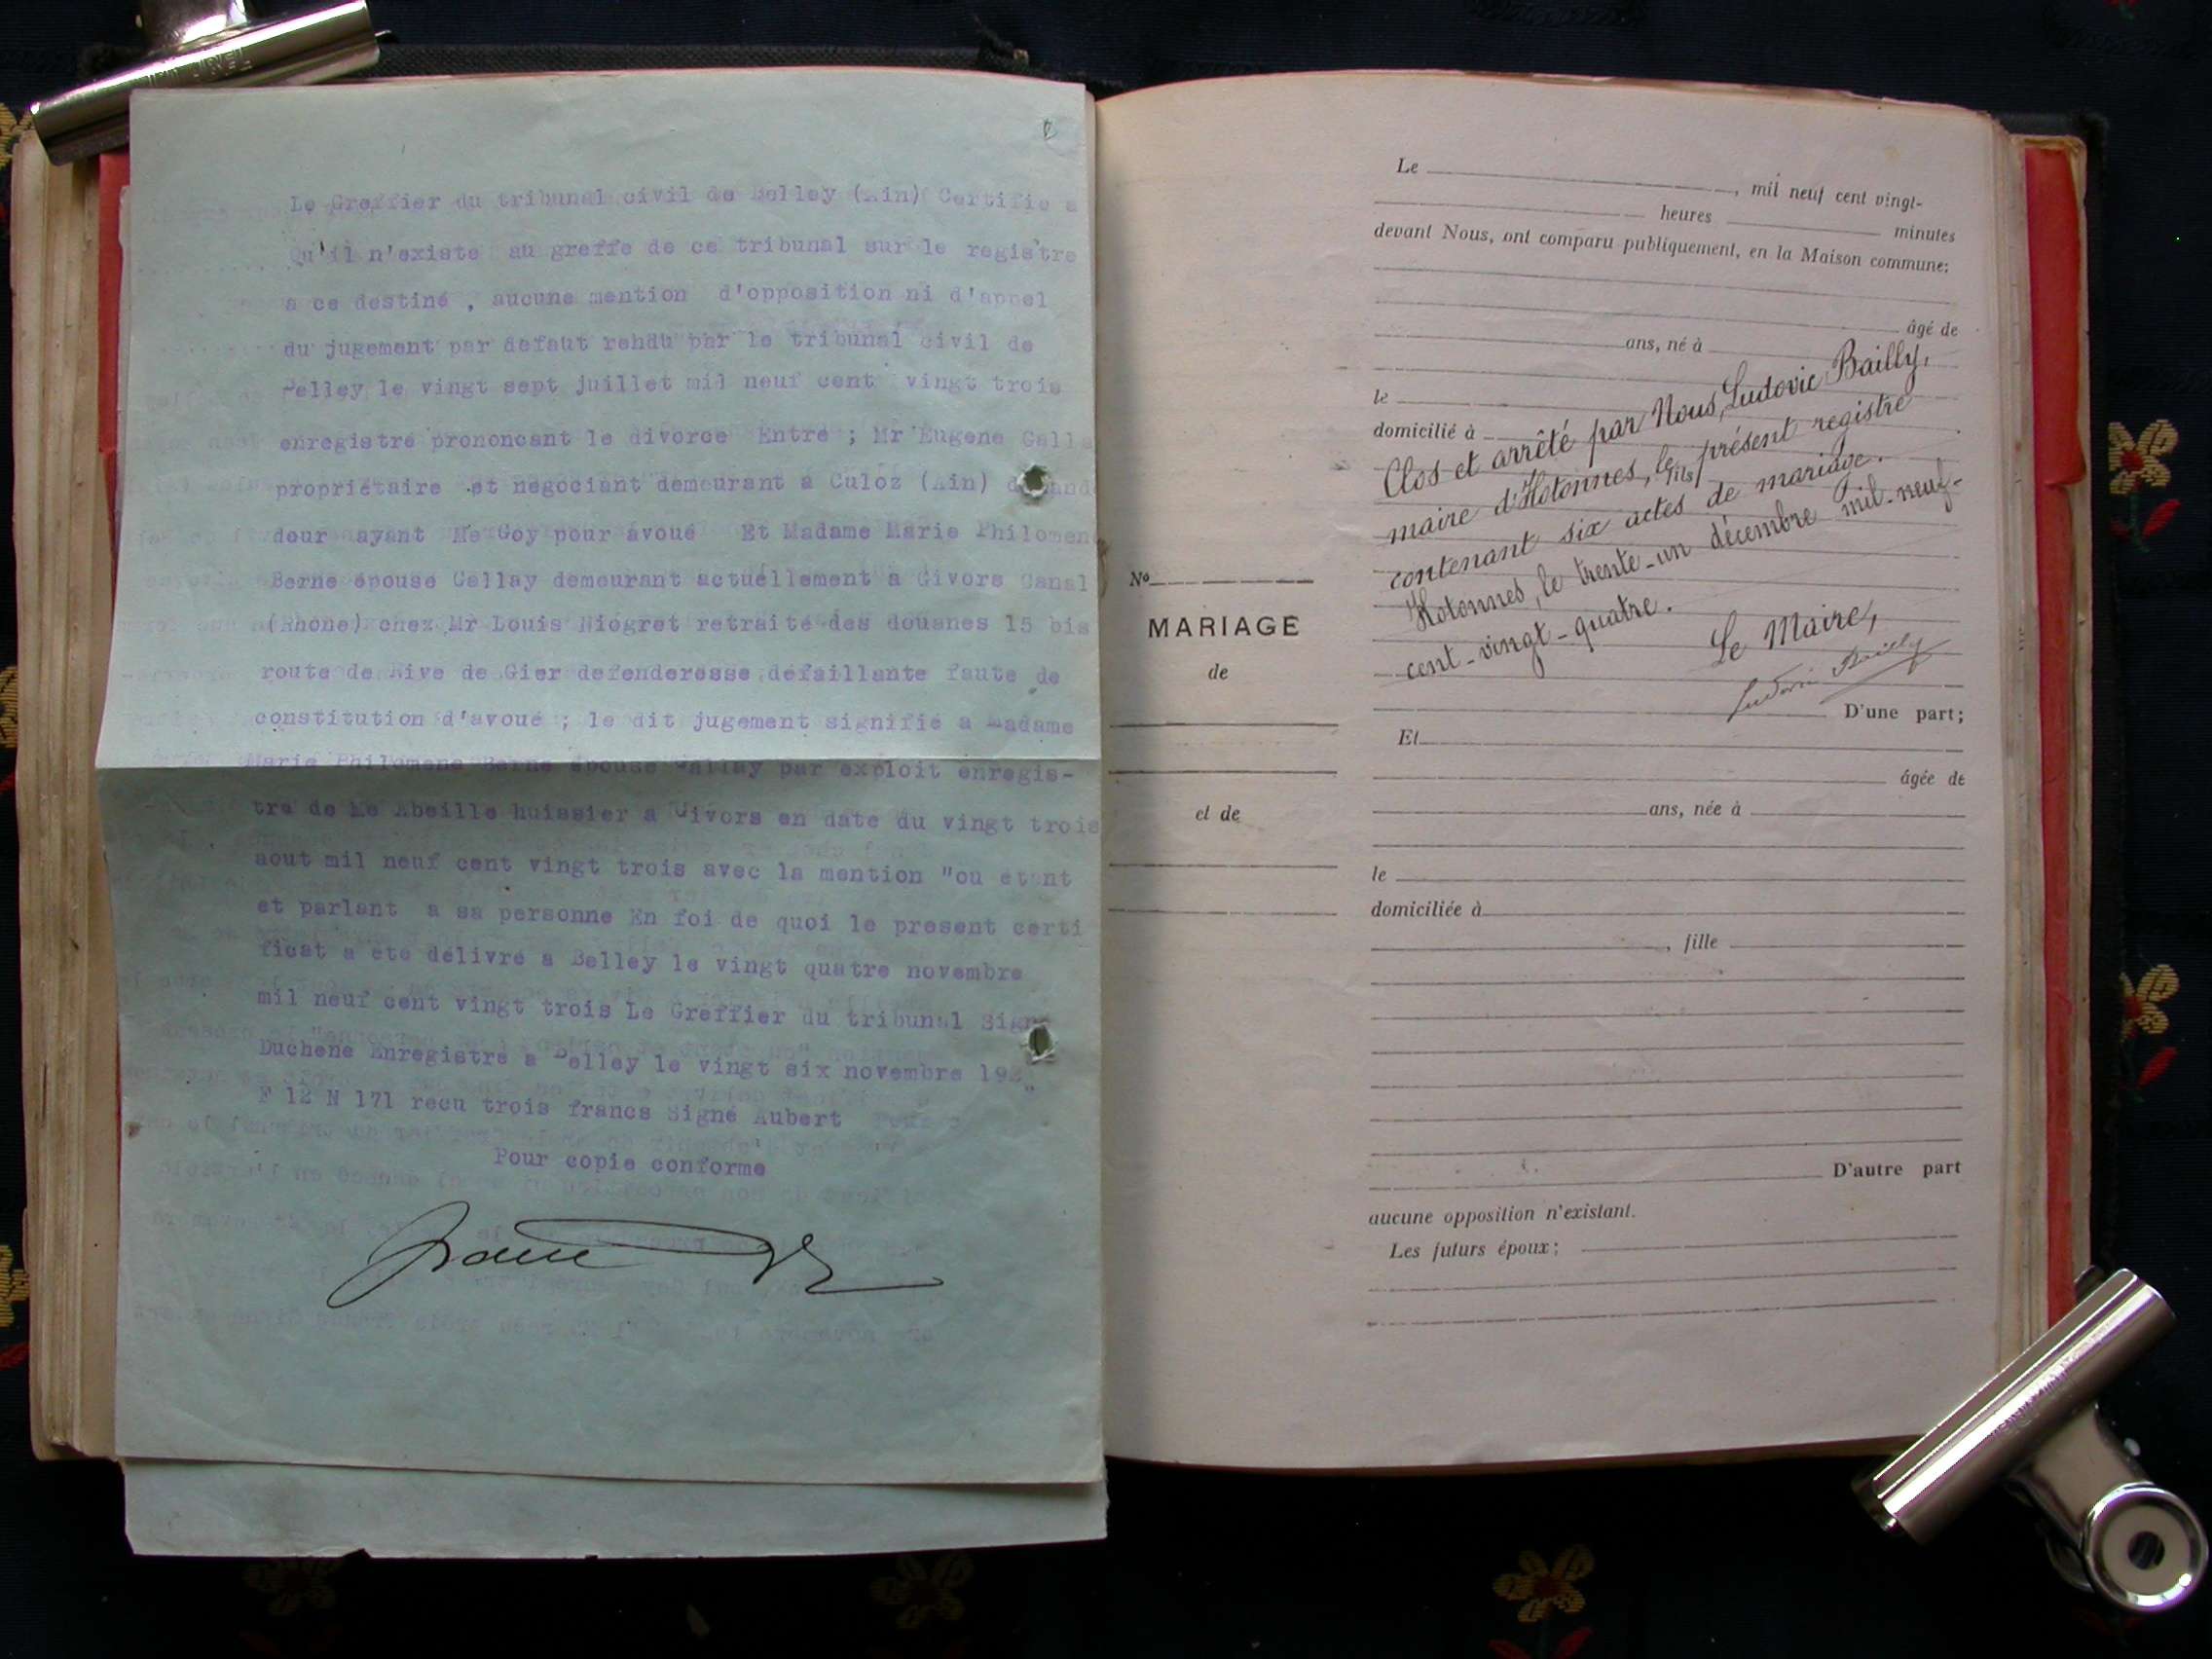 Le Greffier du tribunal civil de Belley (Ain) Certifie a
Qu'il n'existe au greffe de ce tribunal sur le registre
a ce destiné , aucune mention d'opposition ni d'appel
du jugement par defaut rendu par le tribunal civil de
Belley le vingt sept juillet mil neuf cent vingt trois
enregistre prononcant le divorce Entre ; Mr Eugene Galla
propriétaire et négociant demeurant a Culoz (Ain) demand
deur ayant Me Goy pour avoué Et Madame Marie Philomen
Berne épouse Gallay demeurant actuellement a Givors Canal
(Rhone) chez Mr Louis Niogret retraité des douanes 15 bis
route de Rive de Gier defenderesse défaillante faute de
constitution d'avoué ; le dit jugement signifié a Madame
Marie Philomene Berne épouse Gallay par exploit enregis-
tre de Me Abeille huissier a Givors en date du vingt trois
aout mil neuf cent vingt trois avec la mention "ou etant
et parlant a sa personne En foi de quoi le present certi
ficat a été délivré a Belley le vingt quatre novembre
mil neuf cent vingt trois Le Greffier du tribunal Signé
Duchene Enregistre a Belley le vingt six novembre 192
F 12 N 171 recu trois francs Signé Aubert
Pour copie conforme
Le , mil neuf cent vingt-
heures minutes
devant Nous, ont comparu publiquement, en la Maison commune:
âgé de
ans, né à
le
domicilié à
fils
Clos et arrêté par Nous, Ludovic Bailly,
maire d'Hotonnes, le présent registre
contenant six actes de mariage.
Hotonnes, le trente-un décembre mil-neuf-
cent-vingt-quatre.
Le Maire,
Ludovic Bailly
D'une part;
No
MARIAGE
de
et de
Et
âgée de
ans, née à
le
domiciliée à
, fille
D'autre part
aucune opposition n'existant.
Les futurs époux;